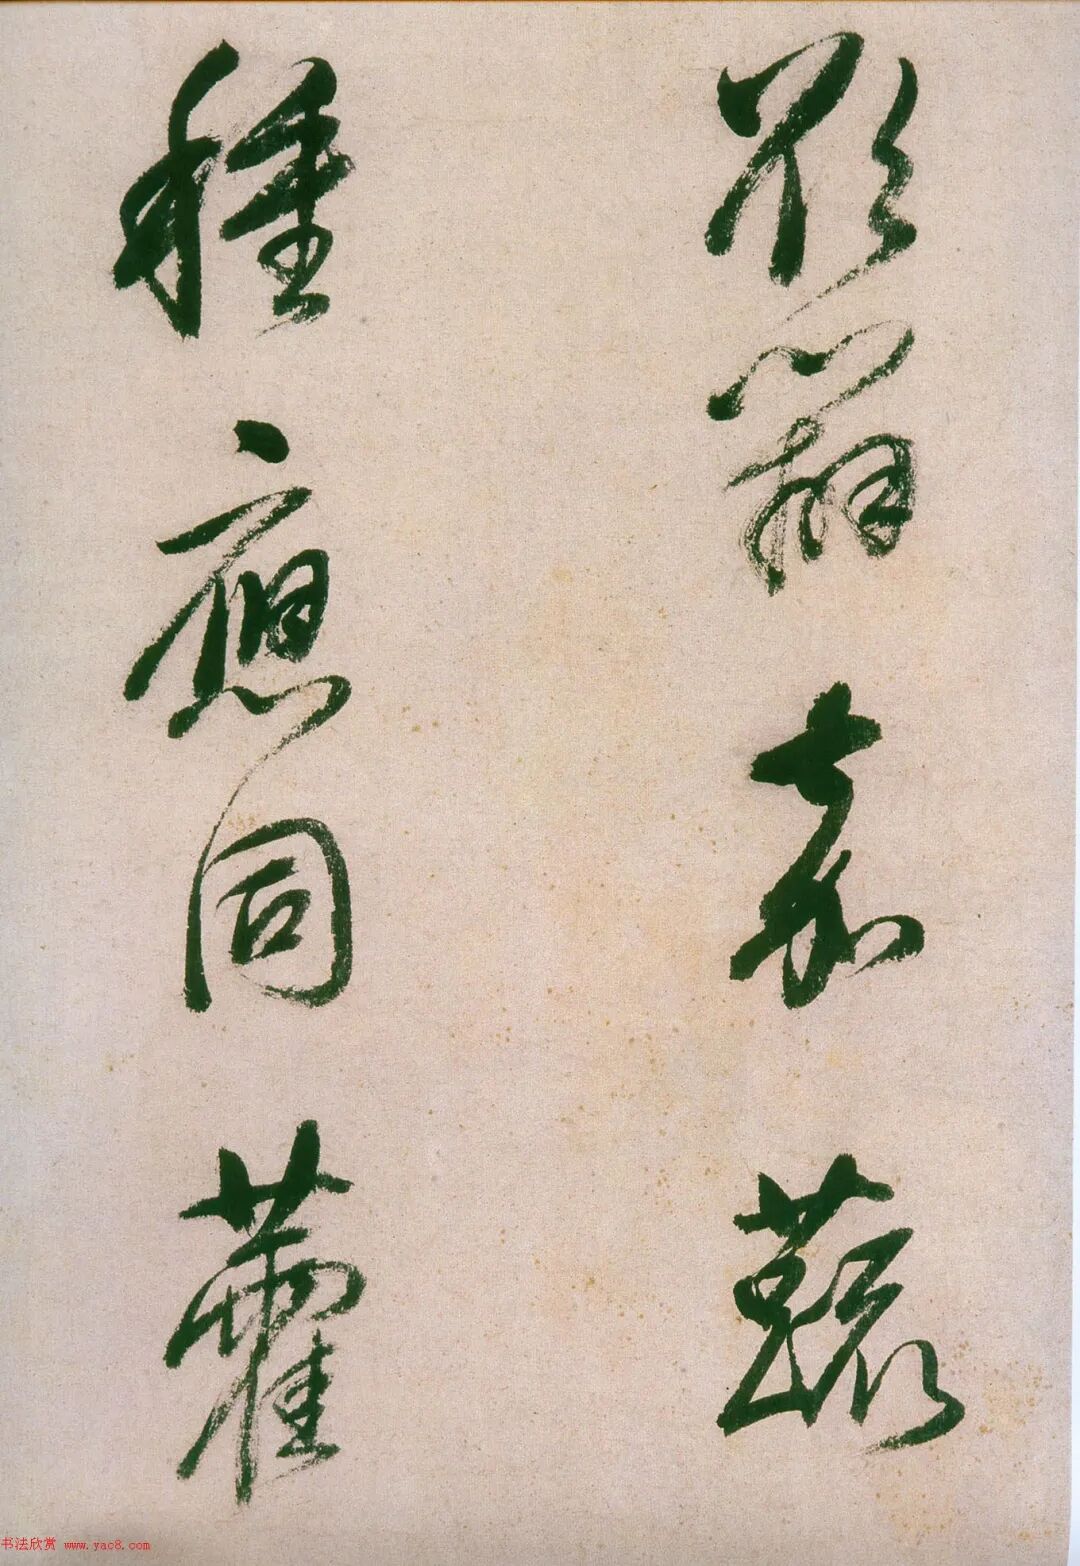 歌筭嘉蔬
種應同藿
书法欣赏 www.yac8.com